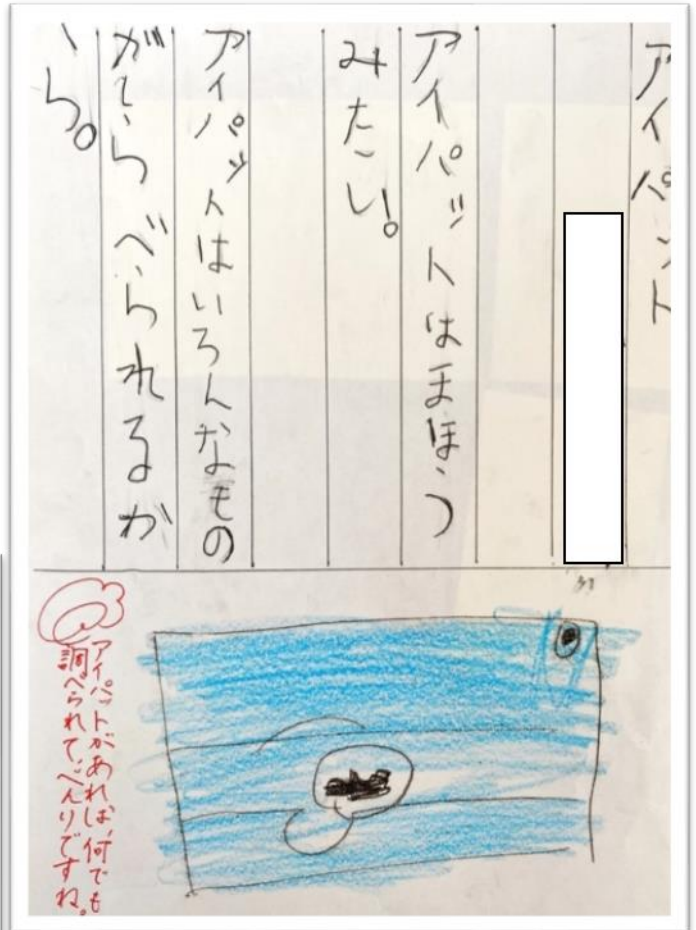 アイパット
アイパットはまほう
みたい。
アイパットはいろんなもの
がしらべられるか
ら。
アイパットがあれば、何でも
調べられて、べんりですね。